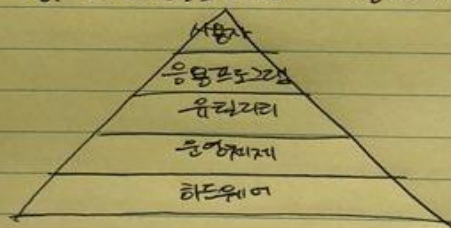 사용자
응용프로그램
유틸리티
운영체제
하드웨어